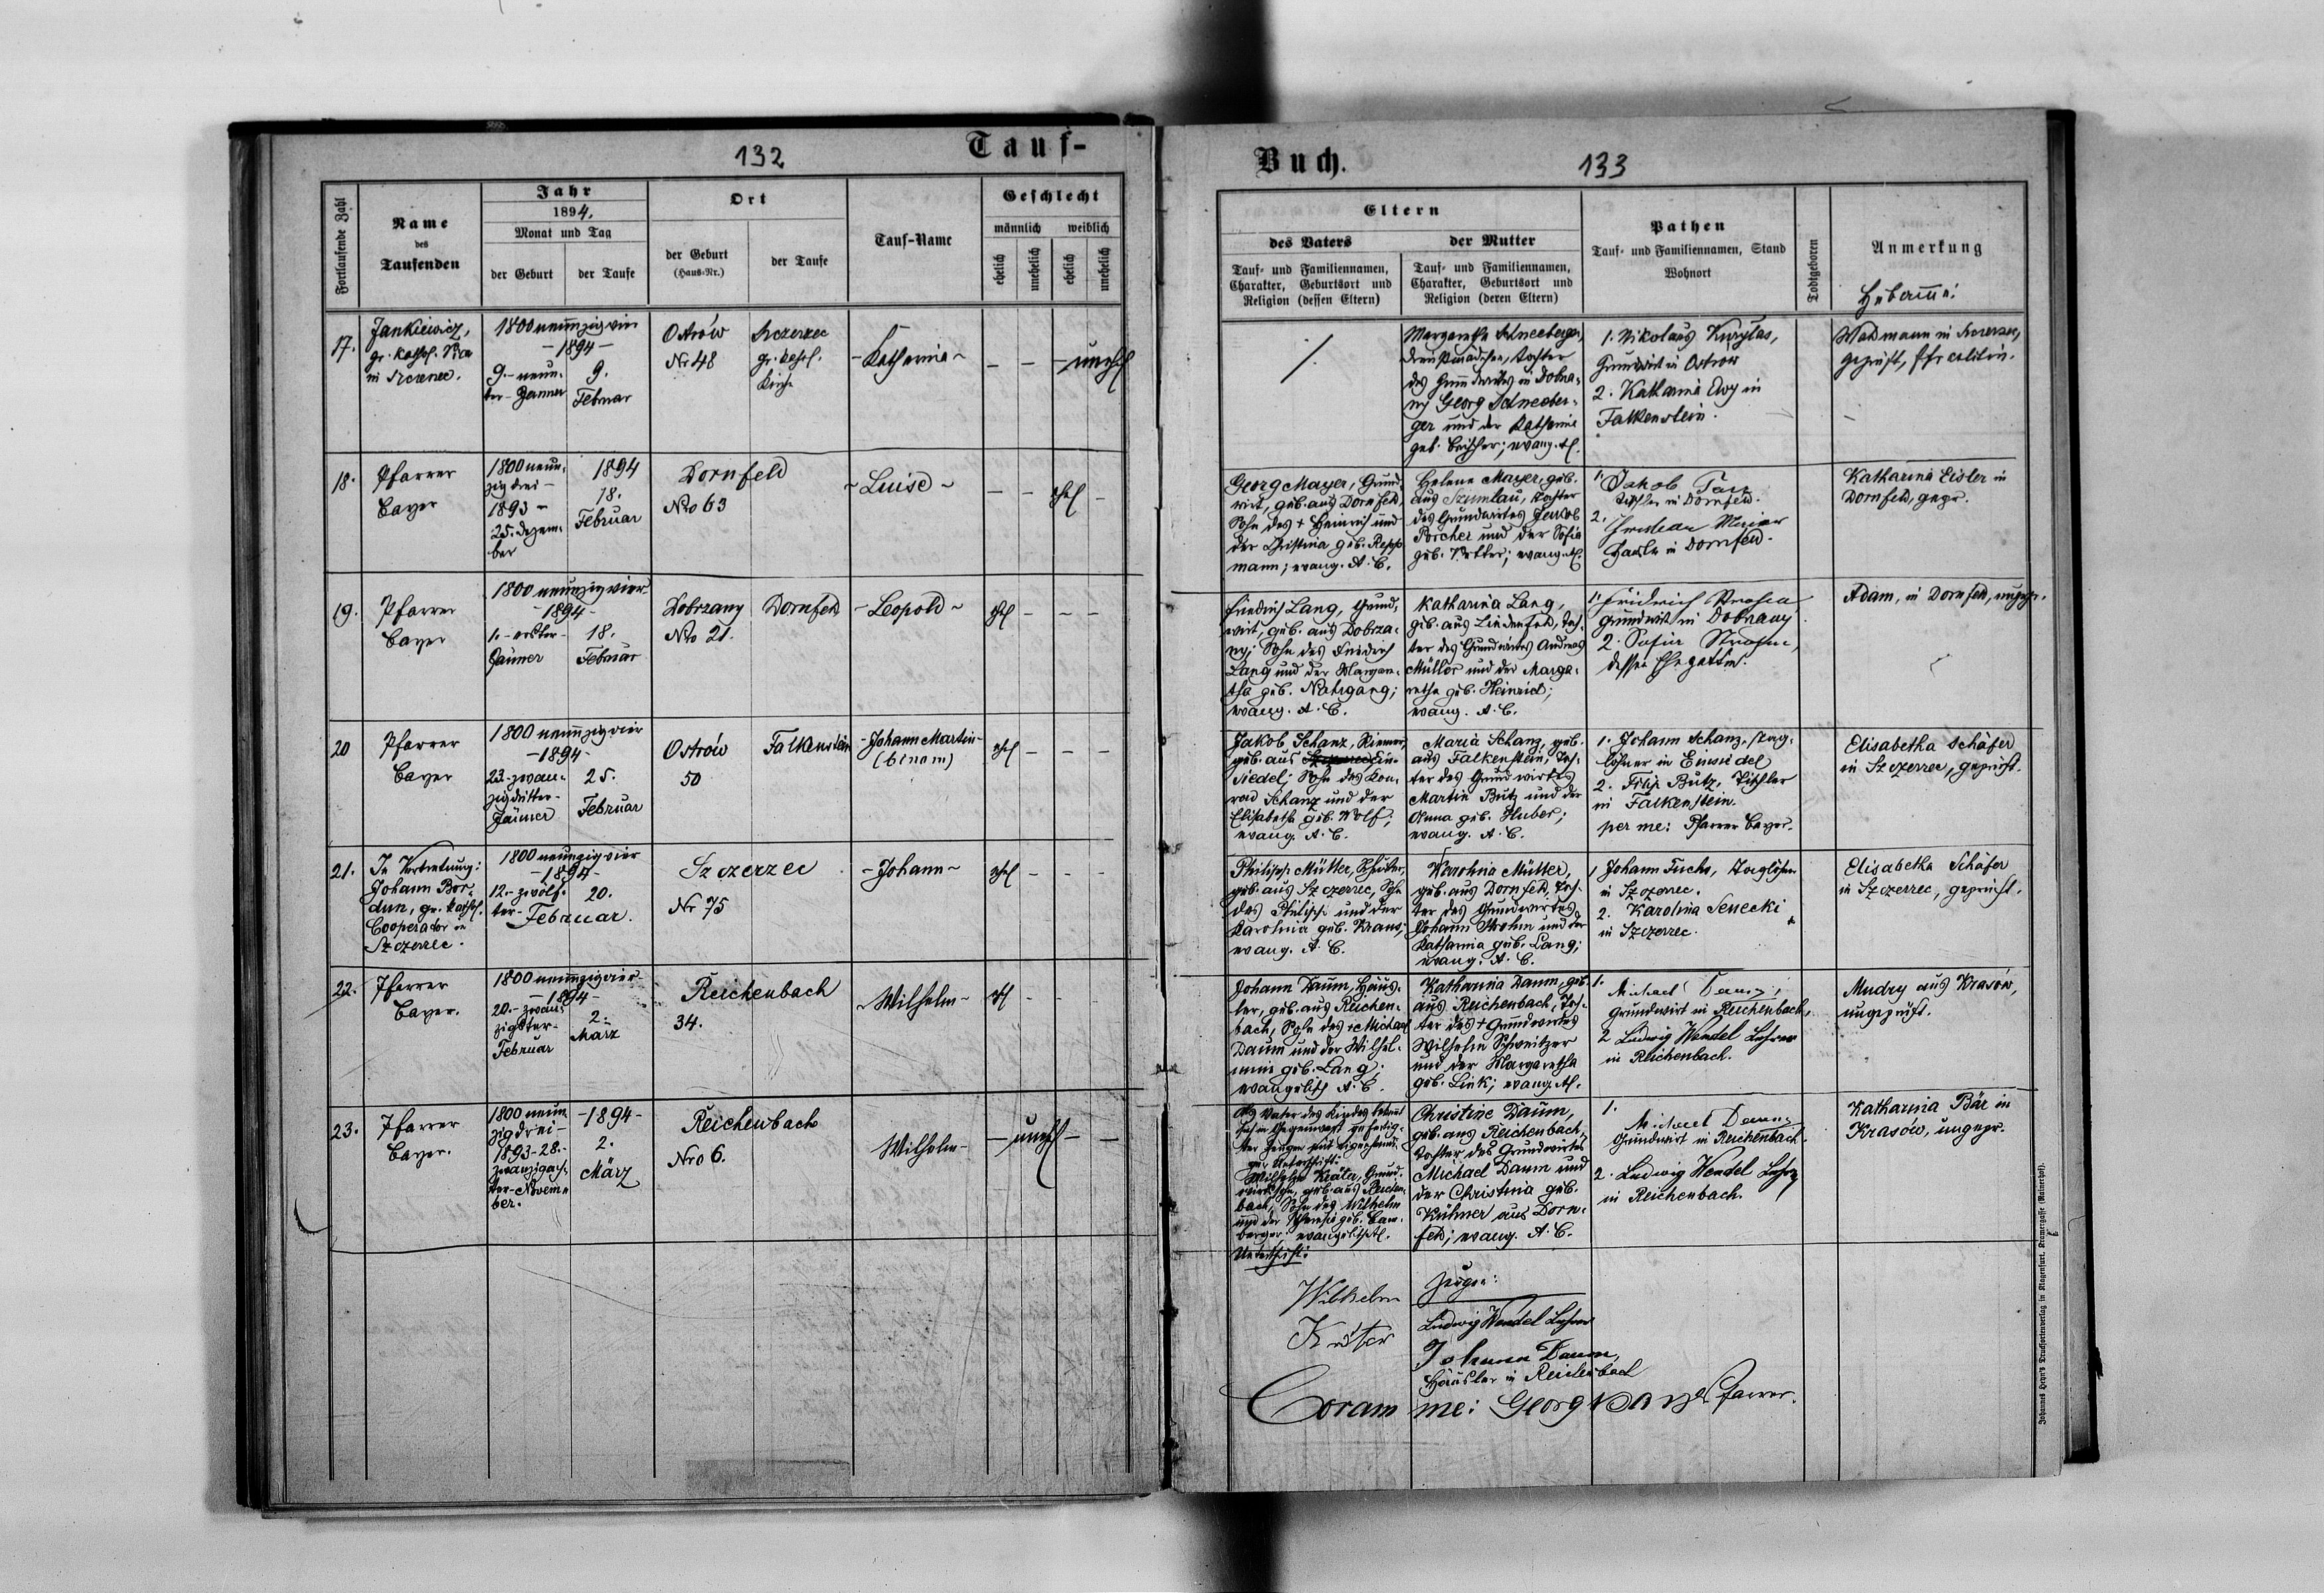 132
Tauf-
Fortlaufende Zahl
Name
des
Taufenden
Jahr
1894.
Monat und Tag
der Geburt
der Taufe
Ort
der Geburt
(Haus-Nr.)
der Taufe
Tauf-Name
Geschlecht
männlich
weiblich
ehelich
unehelich
ehelich
unehelich
17.
Jankiewicz,
gr. kathol.
in
1800 neunzig vier
- 1894 -
9. - neun-
ter - Jänner
9.
Februar
Ostrów
Nr. 48
Szczerzec
gr. kathol.
Kirche
- Katharina -
- - - unehl
18.
Pfarrer
Bayer
1800 neun-
zig drei -
1893 -
25. Dezem-
ber
1894
18.
Februar
Dornfeld
Nro 63
- Luise -
- - ehel -
19.
Pfarrer
Bayer
1800 neunzig vier
- 1894 -
1. - erster -
Jänner
18.
Februar
Dobrzany
Nro 21.
Dornfeld
- Leopold -
ehel - - -
20
Pfarrer
Bayer
1800 neunzig vier
- 1894 -
23. - zwan-
zigdritter -
Jänner
25.
Februar
Ostrów
50
Falkenstein
- Johann Martin -
(binom)
ehel - - -
21.
In Vertretung:
Johann Bor-
dun, gr. kathol.
Cooperator in
Szczerzec.
1800 neunzig vier
- 1894 -
12. - zwölf-
ter -
20.
Februar.
Szczerzec
Nr 75
- Johann -
ehel - - -
22.
Pfarrer
Bayer.
1800 neunzig vier -
- 1894 -
20. - zwan-
zigster -
Februar
2.
März
Reichenbach
34.
- Wilhelm -
ehl - - -
23.
Pfarrer
Bayer.
1800 neun-
zig drei -
1893 - 28. -
zwanzigach-
ter - Novem-
ber.
- 1894 -
2.
März
Reichenbach
Nro 6.
Wilhelm -
- unehl - -
Buch.
133
Eltern
des Vaters
der Mutter
Tauf- und Familiennamen,
Charakter, Geburtsort und
Religion (dessen Eltern)
Tauf- und Familiennamen,
Charakter, Geburtsort und
Religion (deren Eltern)
Pathen
Tauf- und Familiennamen, Stand
Wohnort
Todtgeboren
Anmerkung
Hebamme:
Margaretha Schneeberger,
Dienstmädchen, Tochter
des Grundwirtes in Dobrza-
ny Georg Schneeber-
ger und der Katharina
geb. ; evang. AC.
1. Nikolaus Kurylas,
Grundwirt in Ostrow
2. Katharina in
Falkenstein.
in Szczerzec,
geprüft,
Georg Mayer, Grund-
wirt, geb. aus Dornfeld,
Sohn des + Heinrich und
der Christina geb. Repp-
mann; evang. A. C.
Helene Mayer, geb.
aus Szumlau, Tochter
des Grundwirtes Jakob
Porcher und der Sofia
geb. ; evang. AC.
1. Jakob
in Dornfeld.
2. Christian
in Dornfeld.
Katharina Eisler in
Dornfeld, gepr.
Friedrich Lang, Grund-
wirt, geb. aus Dobrza-
ny; Sohn des Friedrich
Lang und der Margare-
tha geb. Nahrgang;
evang. A. C.
Katharina Lang,
geb. aus Lindenfeld, Toch-
ter des Grundwirtes Andreas
Müller und der Marga-
retha geb. Heinrich;
evang. A. C.
1. Fridrich
Grundwirt in Dobrzany.
2. Sofia
dessen Ehegattin.
Adam, in Dornfeld, ungepr.
Jakob Schanz, Riemer,
geb. aus Ein-
siedel, Sohn des Kon-
rad Schanz und der
Elisabetha geb. Wolf;
evang. A. C.
Maria Schanz, geb.
aus Falkenstein, Toch-
ter des Grundwirtes
Martin Butz und der
Anna geb. Huber;
evang. A. C.
1. Johann Schanz, Tag-
löhner in Einsiedel
2. Filip Butz, Tischler
in Falkenstein.
per me: Pfarrer Bayer.
Elisabetha Schäfer
in Szczerzec, geprüft.
Philipp Müller,
geb. aus Szczerzec, Sohn
des Philipp und der
Karolina geb. Kraus;
evang. A. C.
Karolina Müller,
geb. aus Dornfeld, Toch-
ter des Grundwirtes
Johann Strohm und der
Katharina geb. Lang;
evang. A. C.
1 Johann Fuchs, Taglöhner
in Szczerzec.
2. Karolina Senecki
in Szczerzec.
Elisabetha Schäfer
in Szczerzec, geprüft.
Johann Daum, Häus-
ler, geb. aus Reichen-
bach, Sohn des + Michael
Daum und der Wilhel-
mine geb. Lang;
evangelisch A. C.
Katharina Daum, geb.
aus Reichenbach, Toch-
ter des + Grundwirtes
Wilhelm Schweitzer
und der Margaretha
geb. Link; evang. AC.
1. Michael Daum,
Grundwirt in Reichenbach,
2 Ludwig Wendel Lehrer
in Reichenbach.
Mudry aus Krasów,
ungeprüft.
Als Vater des Kindes bekennt
sich in Gegenwart gefertig-
ter Zeugen mit eigenhändi-
ger Unterschrift:
Wilhelm Kräter, Grund-
wirtssohn, geb. aus Reichen-
bach, Sohn des Wilhelm
und der geb. Bam-
berger; evangelisch AC.
Unterschrift:
Christine Daum,
geb. aus Reichenbach,
Tochter des Grundwirtes
Michael Daum und
der Christina geb.
Kühner aus Dorn-
feld; evang. A. C.
1. Michael Daum
Grundwirt in Reichenbach.
2. Ludwig Wendel Lehrer
in Reichenbach.
Katharina Bär in
Krasów, ungepr.
Wilhelm
Kräter
Zeugen:
Ludwig Wendel Lehrer
Johann Daum,
Häusler in Reichenbach
Coram me: Georg Bayer Pfarrer.
Johannes Heyn's Drucksortenverlag in Klagenfurt, Kramergasse (Rainerhof).